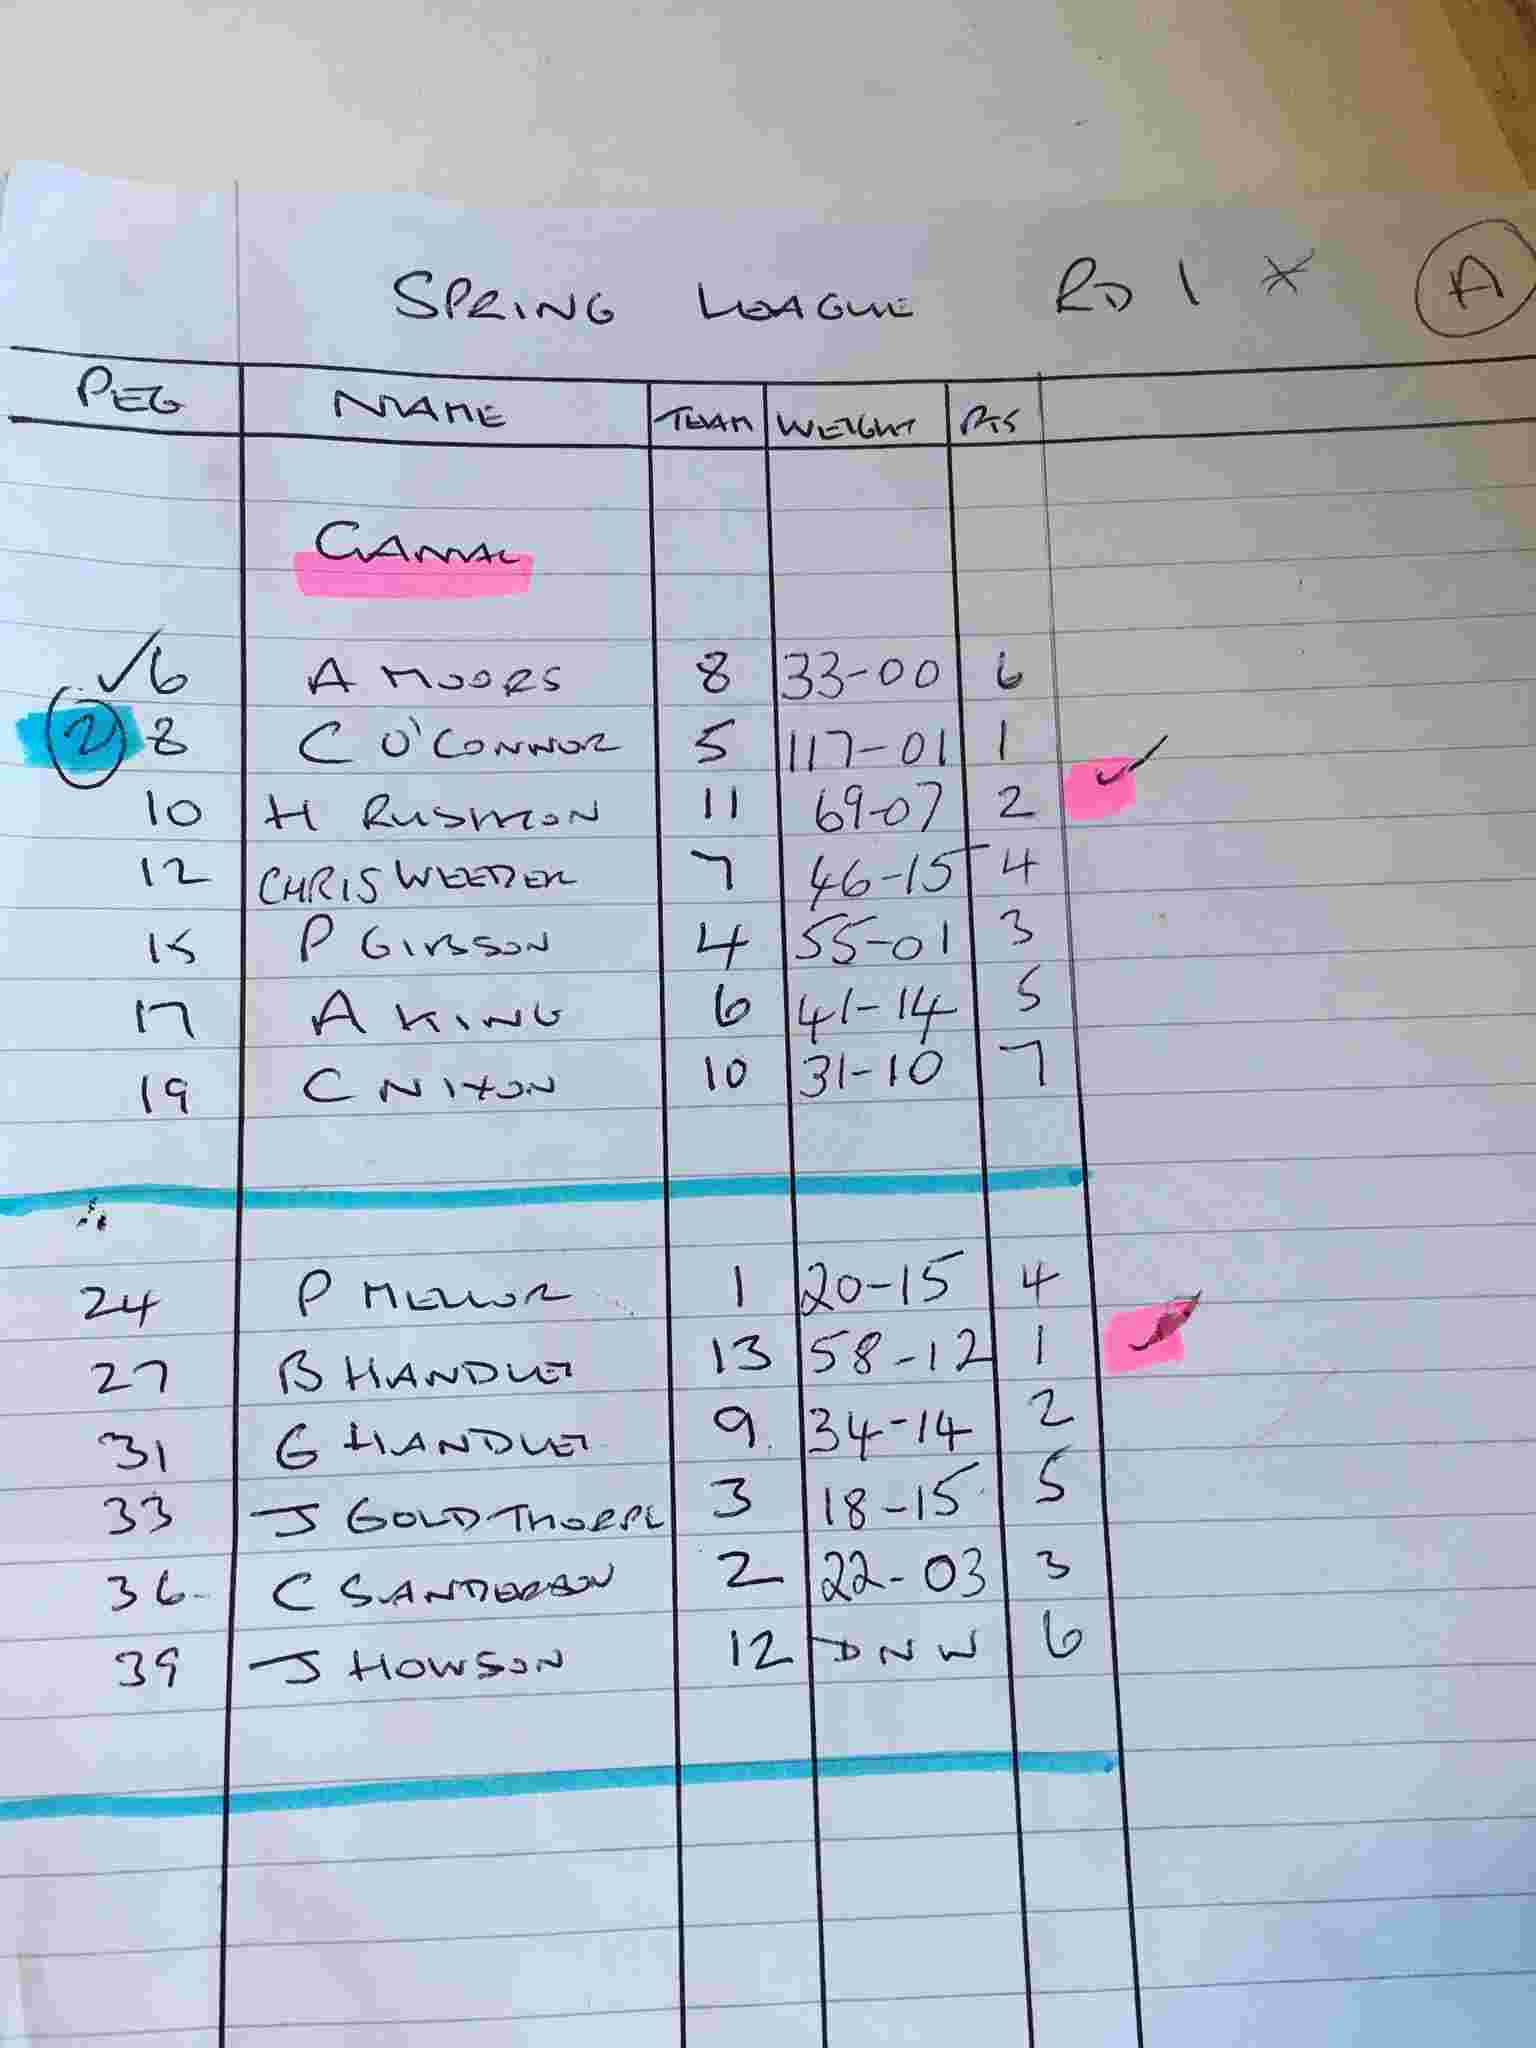 SPRING LEAGUE RD 1 * A
PEG NAME TEAM WEIGHT PTS
CANAL
✓6 A MOORS 8 33-00 6
2 8 C O'CONNOR 5 117-01 1
10 H RUSHTON 11 69-07 2 ✓
12 CHRIS WEEDER 7 46-15 4
15 P GIBSON 4 55-01 3
17 A KING 6 41-14 5
19 C NIXON 10 31-10 7
24 P MELLOR 1 20-15 4
27 B HANDLEY 13 58-12 1 ✓
31 G HANDLEY 9 34-14 2
33 J GOLDTHORPE 3 18-15 5
36 C SANDERSON 2 22-03 3
39 J HOWSON 12 DNW 6